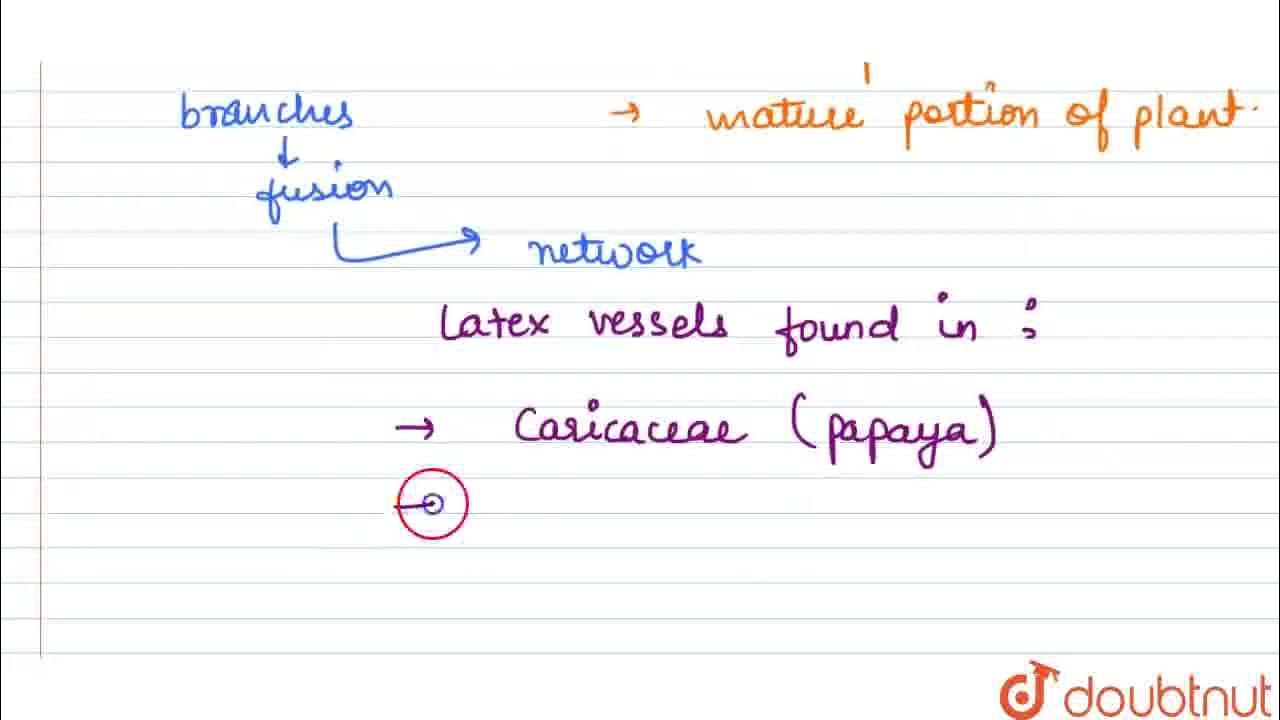 branches → mature portion of plant.
↓
fusion
→ network
Latex vessels found in :
→ Caricaceae (papaya)
doubtnut